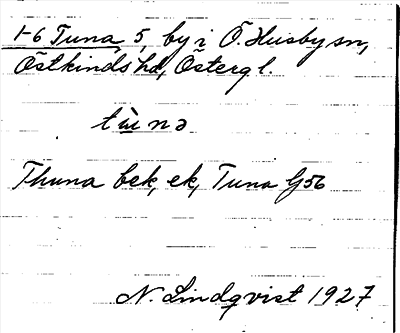 1-6 Tuna, 5, by i Ö. Husby sn,
Östkinds hd, Östergl.
tùnə
Thuna bek, ek, Tuna G56
N. Lindqvist 1927